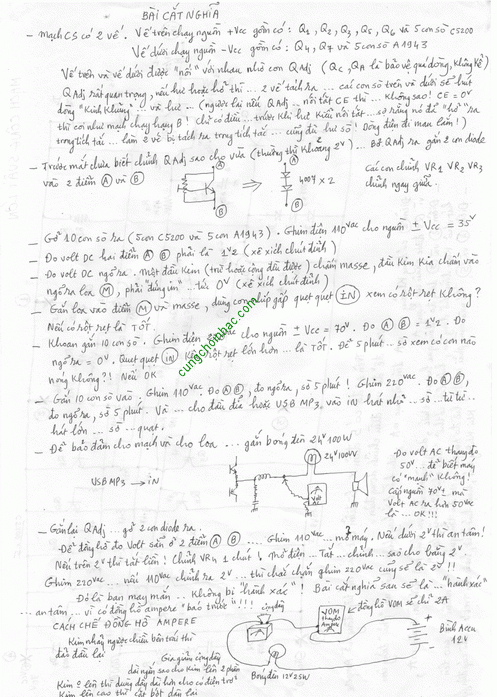 BÀI CẮT NGHĨA
- Mạch CS có 2 vế. Vế trên chạy nguồn +Vcc gồm có: Q1, Q2, Q3, Q5, Q6 và 5 con số C5200
Vế dưới chạy nguồn -Vcc gồm có: Q4, Q7 và 5 con số A1943
Vế trên và vế dưới được "nối" với nhau nhờ con QAdj (Qc, QA là bảo vệ quá dòng, không kể)
QAdj rất quan trọng, nếu hư hoặc hở thì... 2 vế tách ra... các con sò trên và dưới sẽ hút
dòng "Kinh Khủng"... và hư... (ngược lại nếu QAdj... nối tắt CE thì... không sao! CE = 0V
thì coi như mạch chạy hạng B! Chỉ có điều... trước khi hư kiểu nối tắt... sợ rằng nó đã "hở" ra
trong tích tắc... làm 2 vế bị tách ra trong tích tắc... cũng đủ hư sò! Dòng điện đi mau lắm!)
- Trước mắt chưa biết chỉnh QAdj sao cho vừa (thường thì khoảng 2V)... Bỏ QAdj ra gắn 2 con diode
vào 2 điểm A và B
A
B
⇒
A
4007 x 2
B
Các con chỉnh VR1 VR2 VR3
chỉnh ngay giữa.
- Gỡ 10 con sò ra (5 con C5200 và 5 con A1943). Ghim điện 110VAC cho nguồn ± Vcc = 35V
- Đo volt DC hai điểm A B phải là 1V2 (xê xích chút đỉnh)
- Đo volt DC ngõ ra. Một đầu kim (trừ hoặc cộng đều được) chấm masse, đầu kim kia chấm vào
ngõ ra loa M, phải "đúng in"... tức 0V (xê xích chút đỉnh)
- Gắn loa vào điểm M và masse, dùng con nhíp gắp quẹt quẹt IN xem có rột rẹt không?
Nếu có rột rẹt là TỐT.
- Khoan gắn 10 con sò. Ghim điện 220VAC cho nguồn ± Vcc = 70V. Đo A B = 1V2. Đo
ngõ ra = 0V. Quẹt quẹt IN kêu rột rẹt lớn hơn... là TỐT. Để 5 phút... sờ xem có con nào
nóng không?! Nếu OK
- Gắn 10 con sò vào. Ghim 110VAC. Đo A B, đo ngõ ra, sờ 5 phút! Ghim 220VAC. Đo A B,
đo ngõ ra, sờ 5 phút. Và... cho đầu đĩa hoặc USB MP3 vào IN hát nhỏ... sờ... từ từ..
hát lớn... sờ... quạt.
- Để bảo đảm cho mạch và cho loa... gắn bóng đèn 24V 100W
USB MP3 → IN
24V 100W
Đo volt AC thay đổi
50V... để biết máy
có "mạnh" không!
Cái nguồn 70V! mà
Volt AC ra hơn 50VAC
là... OK!!!
- Gắn lại QAdj... gỡ 2 con diode ra.
Để đồng hồ đo Volt sẵn ở 2 điểm A B.... Ghim 110VAC... mở máy. Nếu dưới 2V thì an tâm!
Nếu trên 2V thì tắt liền! Chỉnh VR4 1 chút! Mở điện... Tắt... chỉnh... sao cho bằng 2V.
Ghim 220VAC... nếu 110VAC chỉnh ra 2V... thì chắc chắn ghim 220VAC cũng sẽ là 2V!!
Đó là bạn may mắn.. không bị "hành xác"! Bài cắt nghĩa sau sẽ là... "hành xác"
... an tâm... vì có đồng hồ ampere "báo trước"!!!
CÁCH CHẾ ĐỒNG HỒ AMPERE
cọng dây
VOM
thay đo
Ampere
đồng hồ VOM sẽ chỉ 2A
Bình Accu
12V
Kim nhảy ngược chiều bên trái thì
đảo đầu lại
Gia giảm cọng dây
dài ngắn sao cho kim lên 2 phân
Bóng đèn 12V 25W
Kim ít lên thì dùng dây dài hơn cho có điện trở
Kim lên cao thì cắt bớt dần lại
cungchoinhac.com